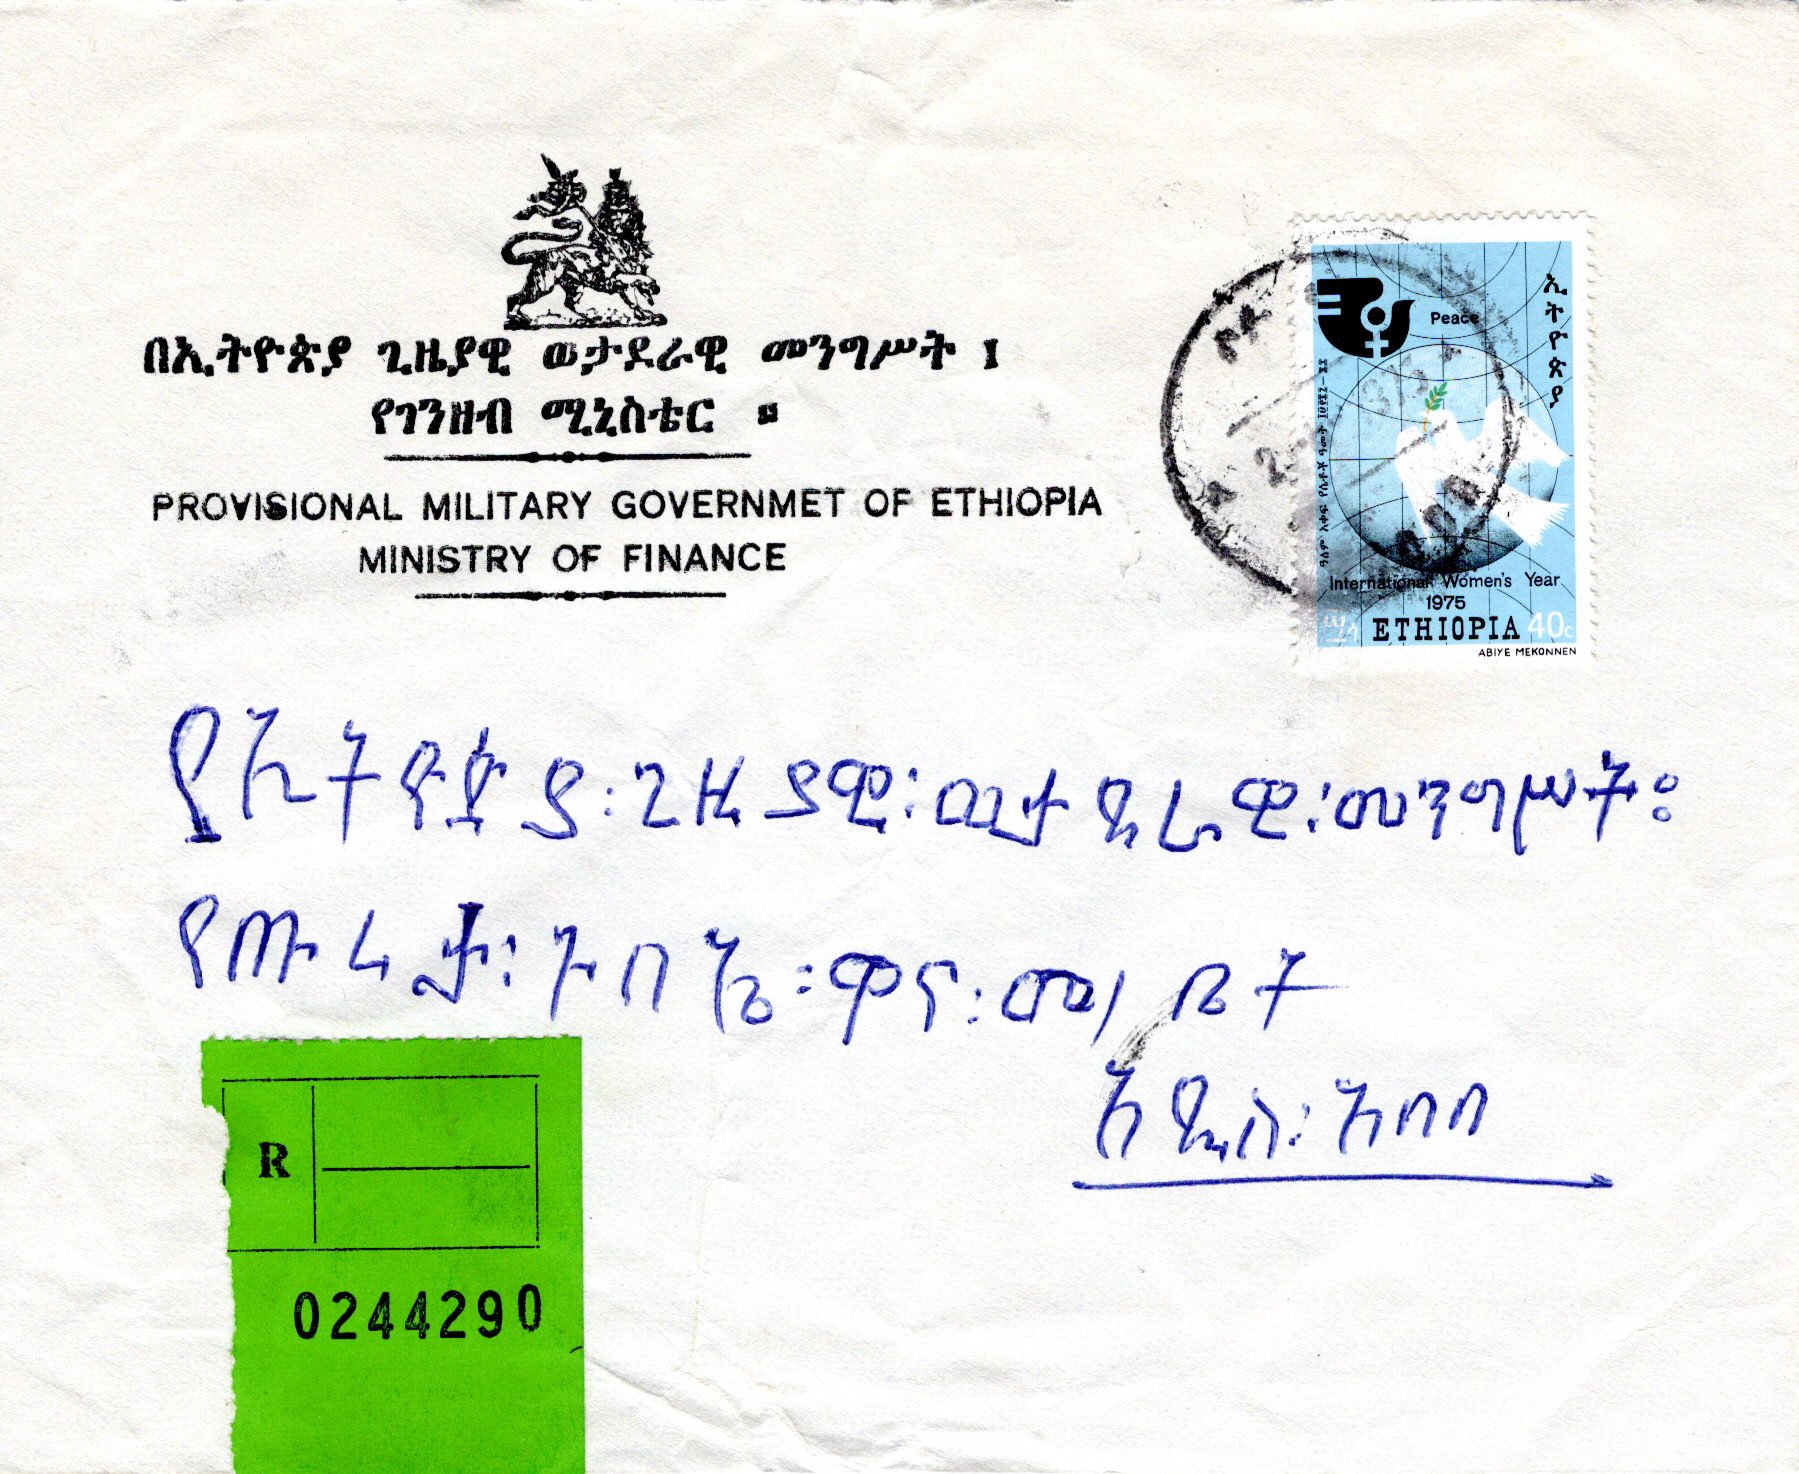 በኢትዮጵያ ጊዜያዊ ወታደራዊ መንግሥት ፤
የገንዘብ ሚኒስቴር ።
PROVISIONAL MILITARY GOVERNMET OF ETHIOPIA
MINISTRY OF FINANCE
Peace
ኢትዮጵያ
ዓለም አቀፍ የሴቶች ዓመት
International Women's Year
1975
ሣ. ETHIOPIA 40c
ABIYE MEKONNEN
የኢትዮጵያ፡ጊዜያዊ፡ወታደራዊ፡መንግሥት።
የጡረታ፡ኮሚሽን፡ዋና፡መ/ቤት
አዲስ፡አበባ
R
0244290